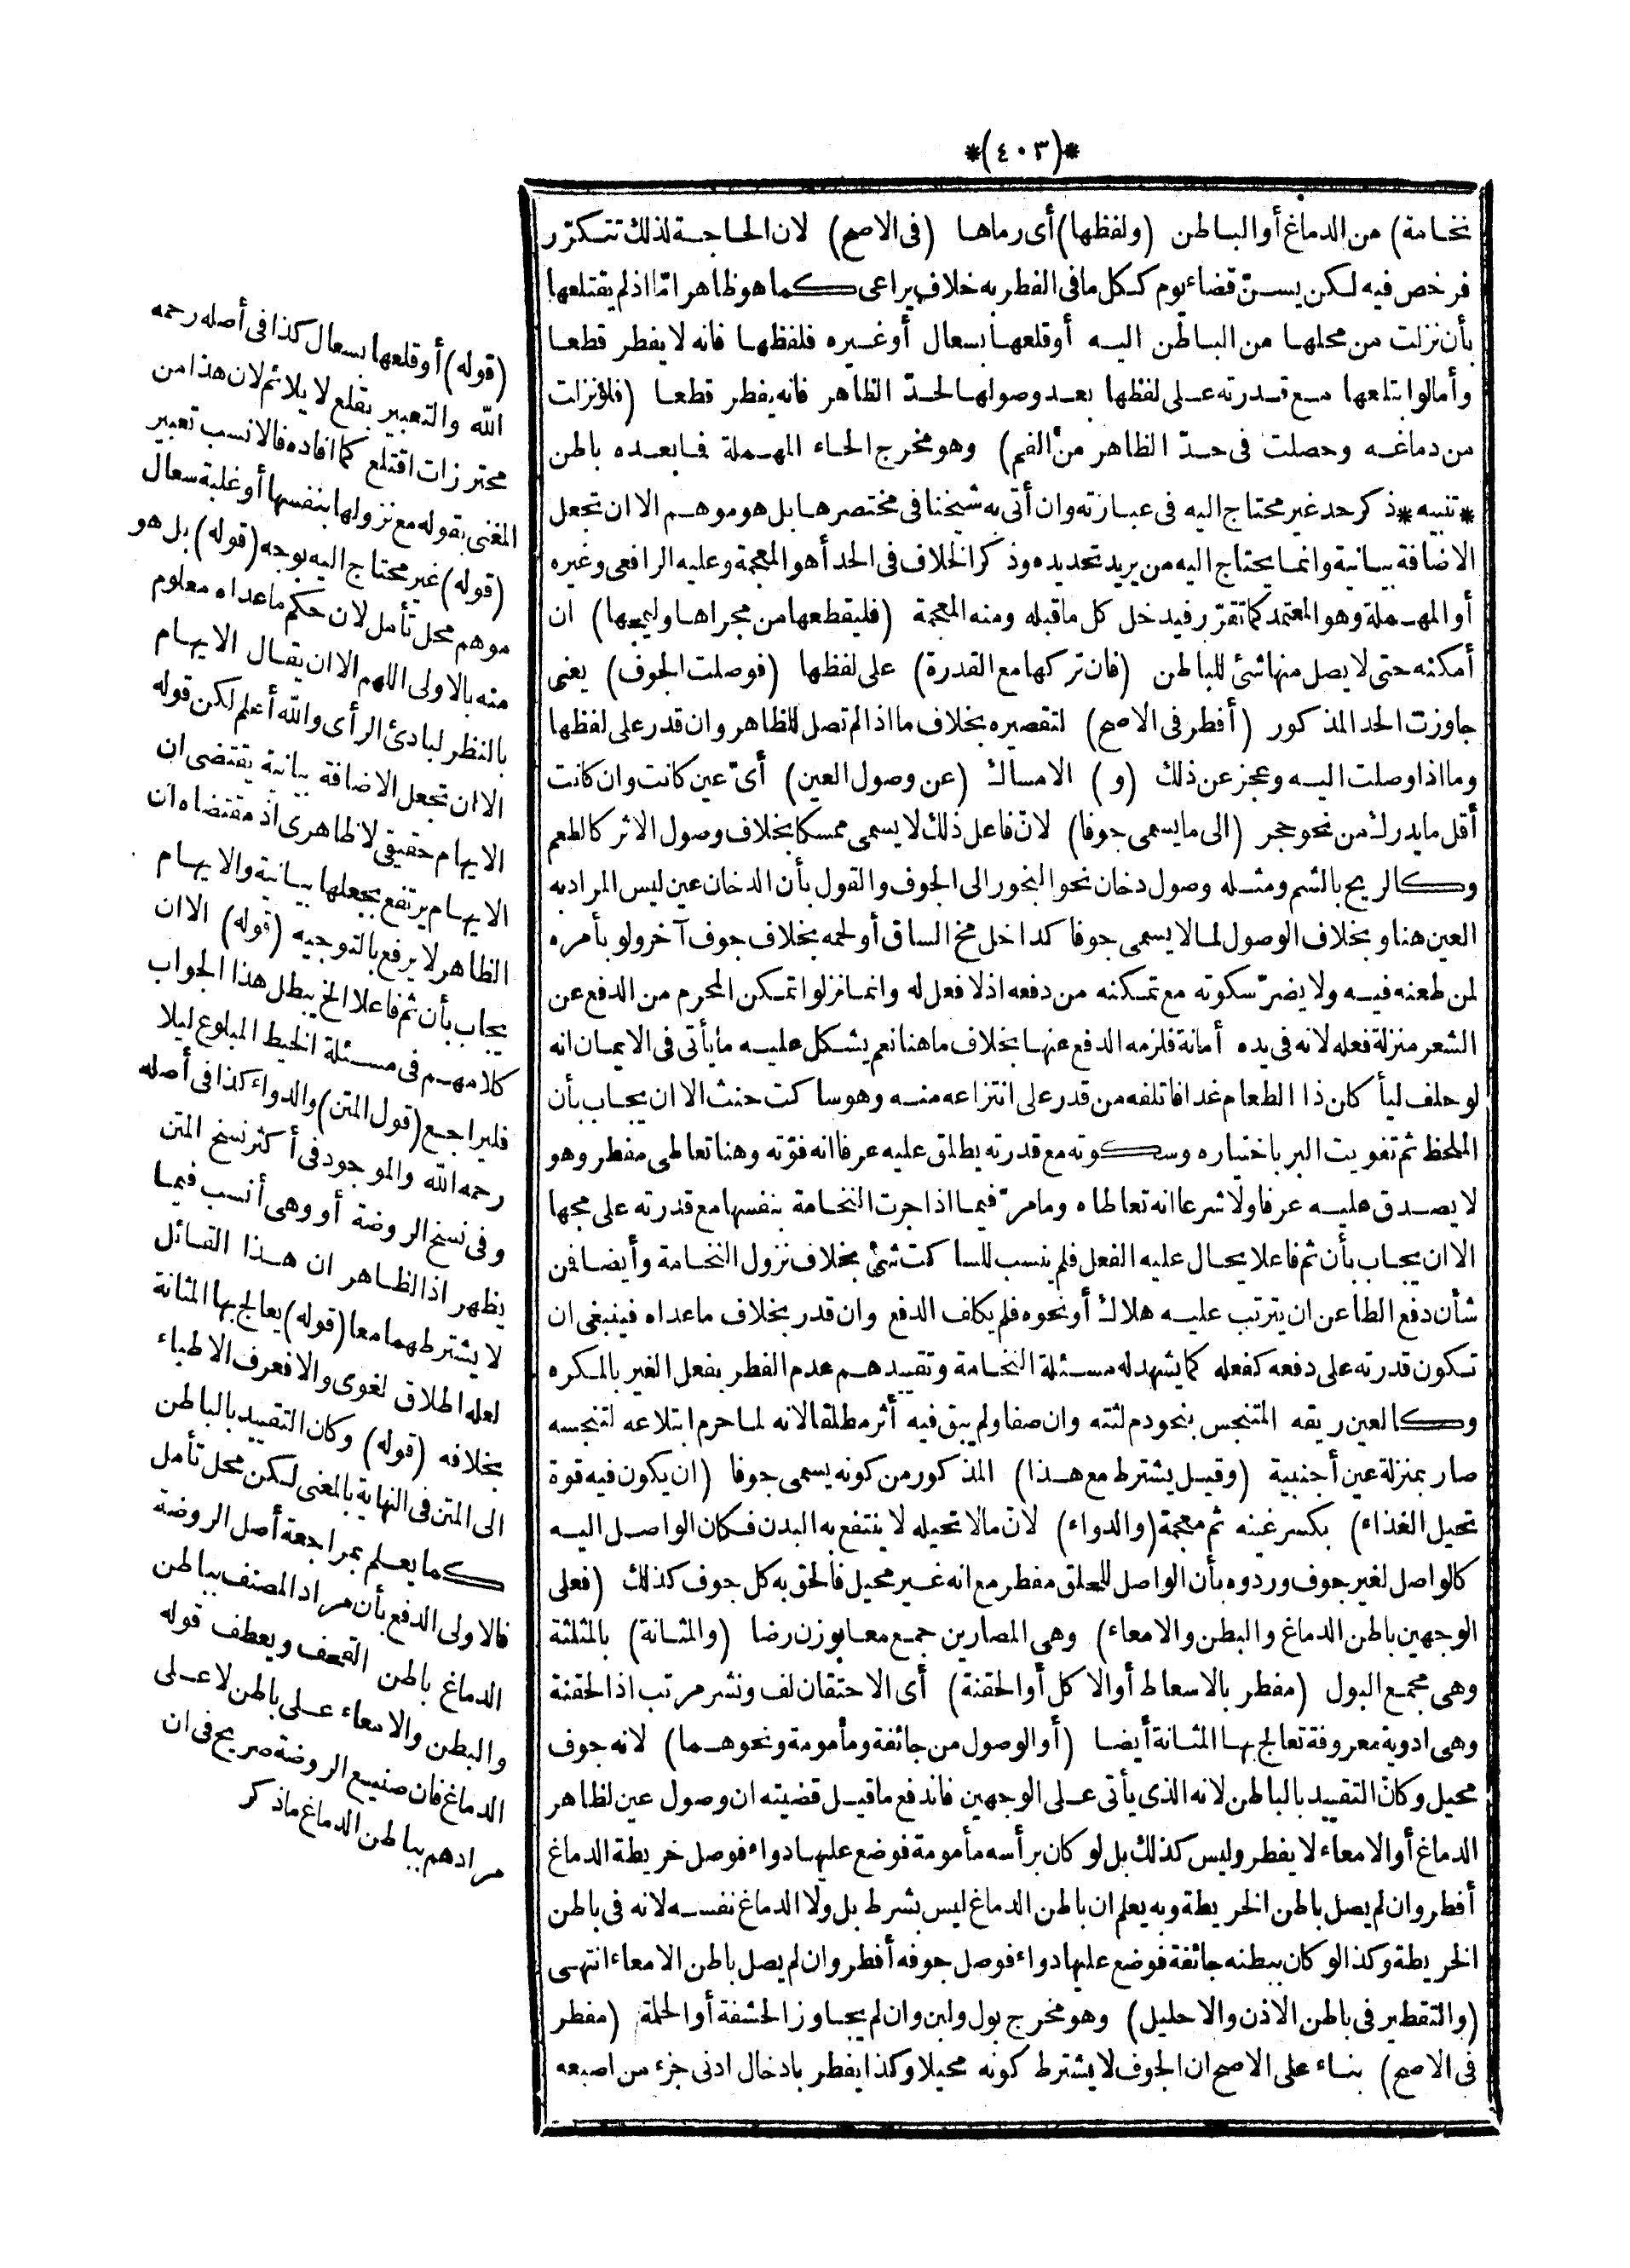 *(٤٠٣)*
نخامة) من الدماغ أو الباطن (ولفظها) أى رماها (فى الاصح) لان الحاجة لذلك تتكرّر
فرخص فيه لكن يسنّ قضاء يوم ككل ما فى الفطر به خلاف يراعى كما هو ظاهر امّا اذ لم يقتلعها
بأن نزلت من محلها من الباطن اليه أو قلعها بسعال أو غيره فلفظها فانه لا يفطر قطعا
وأما لو ابتلعها مع قدرته على لفظها بعد وصولها لحدّ الظاهر فانه يفطر قطعا (فلو نزلت
من دماغه وحصلت فى حدّ الظاهر من الفم) وهو مخرج الحاء المهملة فما بعده باطن
*تنبيه* ذكر حد غير محتاج اليه فى عبارته وان أتى به شيخنا فى مختصرها بل هو موهم الا ان تجعل
الاضافة بيانية وانما يحتاج اليه من يريد تحديده وذكر الخلاف فى الحد أهو المعجمة وعليه الرافعى وغيره
أو المهملة وهو المعتمد كما تقرّر فيدخل كل ما قبله ومنه المعجمة (فليقطعها من مجراها وليمجها) ان
أمكنه حتى لا يصل منها شئ للباطن (فان تركها مع القدرة) على لفظها (فوصلت الجوف) يعنى
جاوزت الحد المذكور (أفطر فى الاصح) لتقصيره بخلاف ما اذا لم تصل للظاهر وان قدر على لفظها
وما اذا وصلت اليه وعجز عن ذلك (و) الامساك (عن وصول العين) أىّ عين كانت وان كانت
أقل ما يدرك من نحو حجر (الى ما يسمى جوفا) لانّ فاعل ذلك لا يسمى ممسكا بخلاف وصول الاثر كالطعم
وكالريح بالشم ومثله وصول دخان نحو البخور الى الجوف والقول بأن الدخان عين ليس المراد به
العين هنا وبخلاف الوصول لما لا يسمى جوفا كداخل مخ الساق أو لحمه بخلاف جوف آخر ولو بأمره
لمن طعنه فيه ولا يضرّ سكوته مع تمكنه من دفعه اذ لا فعل له وانما نزلوا تمكن المحرم من الدفع عن
الشعر منزلة فعله لانه فى يده أمانة فلزمه الدفع عنها بخلاف ما هنا نعم يشكل عليه ما يأتى فى الايمان انه
لو حلف ليأكلن ذا الطعام غدا فاتلفه من قدر على انتزاعه منه وهو ساكت حنث الا ان يجاب بأن
الملحظ ثم تفويت البر باختياره وسكوته مع قدرته يطلق عليه عرفا انه فوّته وهنا تعاطى مفطر وهو
لا يصدق عليه عرفا ولا شرعا انه تعاطاه ومامرّ فيما اذا جرت النخامة بنفسها مع قدرته على مجها
الا ان يجاب بأن ثم فاعلا يحال عليه الفعل فلم ينسب للساكت شئ بخلاف نزول النخامة وأيضا فمن
شأن دفع الطاعن ان يترتب عليه هلاك أو نحوه فلم يكلف الدفع وان قدر بخلاف ما عداه فينبغى ان
تكون قدرته على دفعه كفعله كما يشهد له مسئلة النخامة وتقييدهم عدم الفطر بفعل الغير بالمكره
وكالعين ريقه المتنجس بنحو دم لثته وان صفا ولم يبق فيه أثر مطلقا لانه لما حرم ابتلاعه لتنجسه
صار بمنزلة عين أجنبية (وقيل يشترط مع هذا) المذكور من كونه يسمى جوفا (ان يكون فيه قوة
تحيل الغذاء) بكسر غينه ثم معجمة (والدواء) لانّ ما لا تحيله لا ينتفع به البدن فكان الواصل اليه
كالواصل لغير جوف وردوه بأن الواصل للحلق مفطر مع انه غير محيل فالحق به كل جوف كذلك (فعلى
الوجهين باطن الدماغ والبطن والامعاء) وهى المصارين جمع معا بوزن رضا (والمثانة) بالمثلثة
وهى مجمع البول (مفطر بالاسعاط أو الاكل أو الحقنة) أى الاحتقان لف ونشر مرتب اذ الحقنة
وهى ادوية معروفة تعالج بها المثانة أيضا (أو الوصول من جائفة ومأمومة ونحوهما) لانه جوف
محيل وكانّ التقييد بالباطن لانه الذى يأتى على الوجهين فاندفع ما قيل قضيته ان وصول عين لظاهر
الدماغ أو الامعاء لا يفطر وليس كذلك بل لو كان برأسه مأمومة فوضع عليها دواء فوصل خريطة الدماغ
أفطر وان لم يصل باطن الخريطة وبه يعلم ان باطن الدماغ ليس بشرط بل ولا الدماغ نفسه لانه فى باطن
الخريطة وكذا لو كان ببطنه جائفة فوضع عليها دواء فوصل جوفه أفطر وان لم يصل باطن الامعاء انتهى
(والتقطير فى باطن الاذن والاحليل) وهو مخرج بول ولبن وان لم يجاوز الحشفة أو الحلمة (مفطر
فى الاصح) بناء على الاصح ان الجوف لا يشترط كونه محيلا وكذا يفطر بادخال ادنى جزء من اصبعه
(قوله) أو قلعها بسعال كذا فى أصله رحمه
الله والتعبير بقلع لا يلائم لان هذا من
محترزات اقتلع كما افاده فالانسب تعبير
المغنى بقوله مع نزولها بنفسها أو غلبة سعال
(قوله) غير محتاج اليه بوجه (قوله) بل هو
موهم محل تأمل لان حكم ما عداه معلوم
منه بالاولى اللهم الا ان يقال الايهام
بالنظر لبادئ الرأى والله أعلم لكن قوله
الا ان تجعل الاضافة بيانية يقتضى ان
الايهام حقيقى لا ظاهرى اذ مقتضاه ان
الايهام يرتفع بجعلها بيانية والايهام
الظاهر لا يرفع بالتوجيه (قوله) الا ان
يجاب بأن ثم فاعلا الخ يبطل هذا الجواب
كلامهم فى مسئلة الخيط المبلوع ليلا
فليراجع (قول المتن) والدواء كذا فى أصله
رحمه الله والموجود فى أكثر نسخ المتن
وفى نسخ الروضة أو وهى أنسب فيما
يظهر اذ الظاهر ان هذا القائل
لا يشترطهما معا (قوله) يعالج بها المثانة
لعله اطلاق لغوى والا فعرف الاطباء
بخلافه (قوله) وكان التقييد بالباطن
الى المتن فى النهاية بالمعنى لكن محل تأمل
كما يعلم بمراجعة أصل الروضة
فالاولى الدفع بأن مراد المصنف بباطن
الدماغ باطن القحف ويعطف قوله
والبطن والامعاء على باطن لا على
الدماغ فان صنيع الروضة صريح فى ان
مرادهم بباطن الدماغ ما ذكر